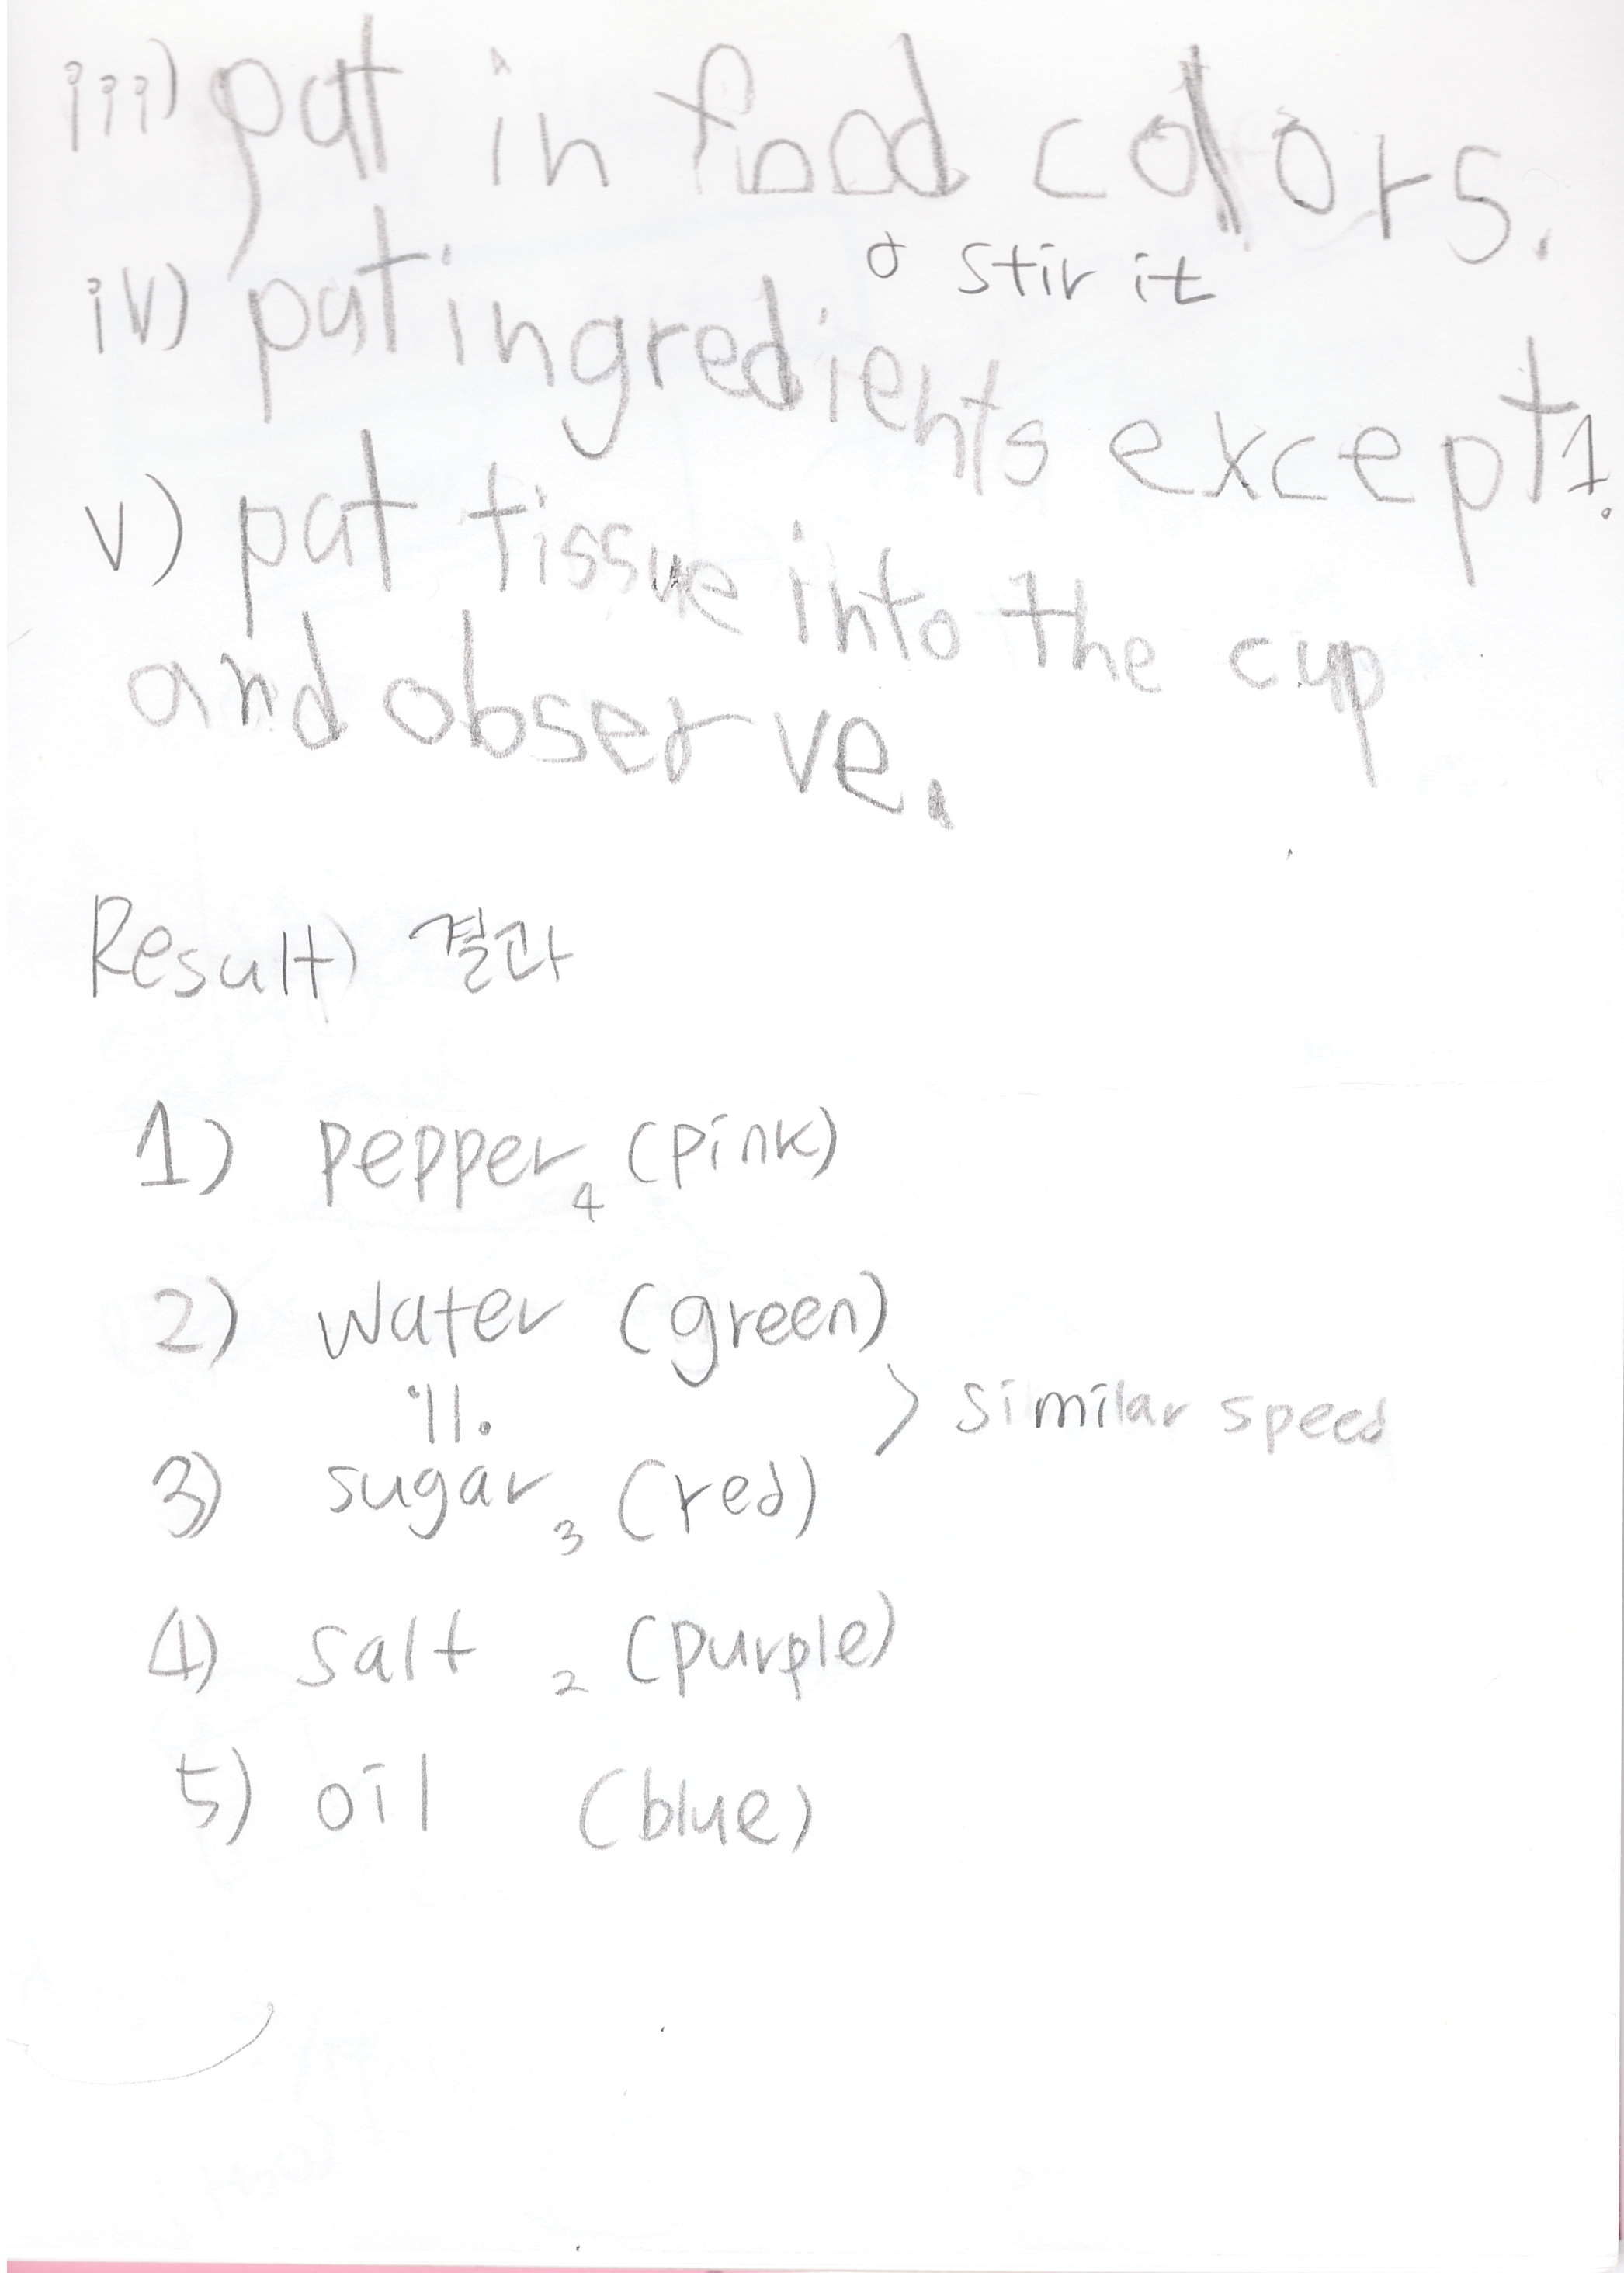 iii) pat in food colors.
& stir it
iv) pat ingredients except 1.
v) pat tissue into the cup
and observe.
Result) 결과
1) pepper 4 (pink)
2) water (green)
> similar speed
3) sugar 3 (red)
4) salt 2 (purple)
5) oil (blue)